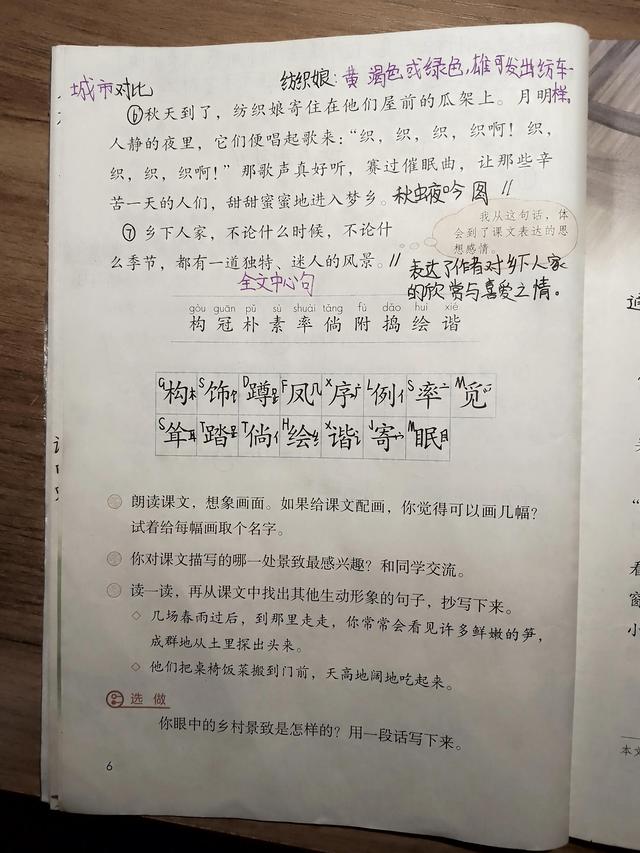 城市对比
纺织娘：黄褐色或绿色，雄可发出纺车一样，
⑥秋天到了，纺织娘寄住在他们屋前的瓜架上。月明
人静的夜里，它们便唱起歌来：“织，织，织，织啊！织，
织，织，织啊！”那歌声真好听，赛过催眠曲，让那些辛
苦一天的人们，甜甜蜜蜜地进入梦乡。秋虫夜吟图 //
⑦乡下人家，不论什么时候，不论什
么季节，都有一道独特、迷人的风景。//
我从这句话，体
会到了课文表达的思
想感情。
全文中心句
表达了作者对乡下人家
的欣赏与喜爱之情。
gòu guān pǔ sù shuài tǎng fù dǎo huì xié
构 冠 朴 素 率 倘 附 捣 绘 谐
G构木 S饰饣 D蹲𧾷 F凤几 X序广 L例亻 S率亠 M觅
S耸耳 T踏𧾷 T倘亻 H绘纟 X谐讠 J寄宀 M眠目
朗读课文，想象画面。如果给课文配画，你觉得可以画几幅？
试着给每幅画取个名字。
你对课文描写的哪一处景致最感兴趣？和同学交流。
读一读，再从课文中找出其他生动形象的句子，抄写下来。
◇ 几场春雨过后，到那里走走，你常常会看见许多鲜嫩的笋，
成群地从土里探出头来。
◇ 他们把桌椅饭菜搬到门前，天高地阔地吃起来。
选做
你眼中的乡村景致是怎样的？用一段话写下来。
6
本文